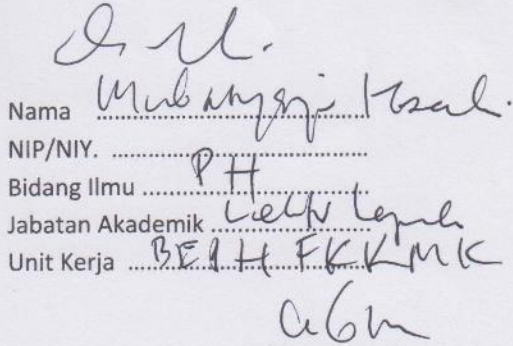 Nama
NIP/NIY.
Bidang Ilmu PH
Jabatan Akademik Lektor Kepala
Unit Kerja BEPH FKKMK
UGM